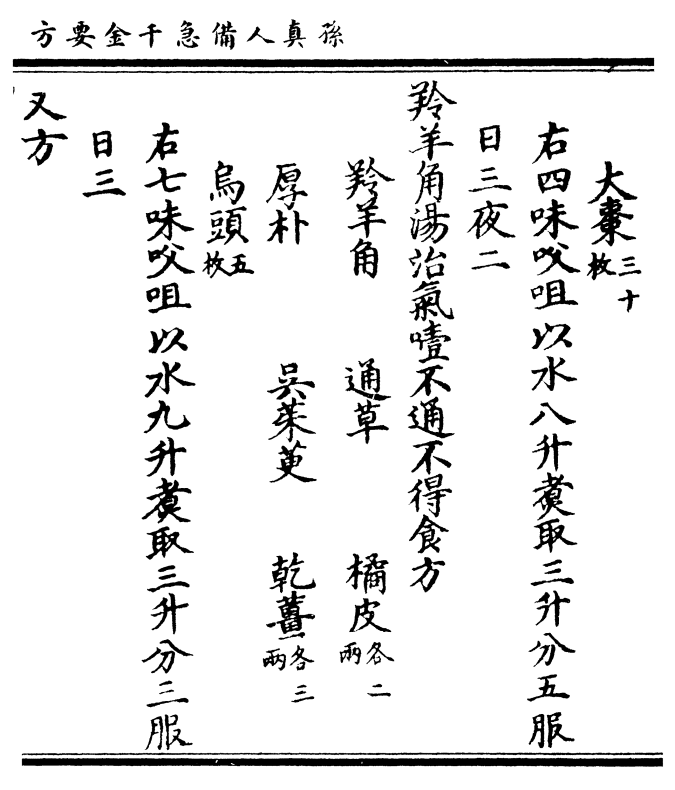 孫真人備急千金要方
大棗三十枚
右四味㕮咀以水八升煮取三升分五服
日三夜二
羚羊角湯治氣噎不通不得食方
羚羊角 通草 橘皮各二兩
厚朴 吳茱萸 乾薑各三兩
烏頭五枚
右七味㕮咀以水九升煮取三升分三服
日三
又方